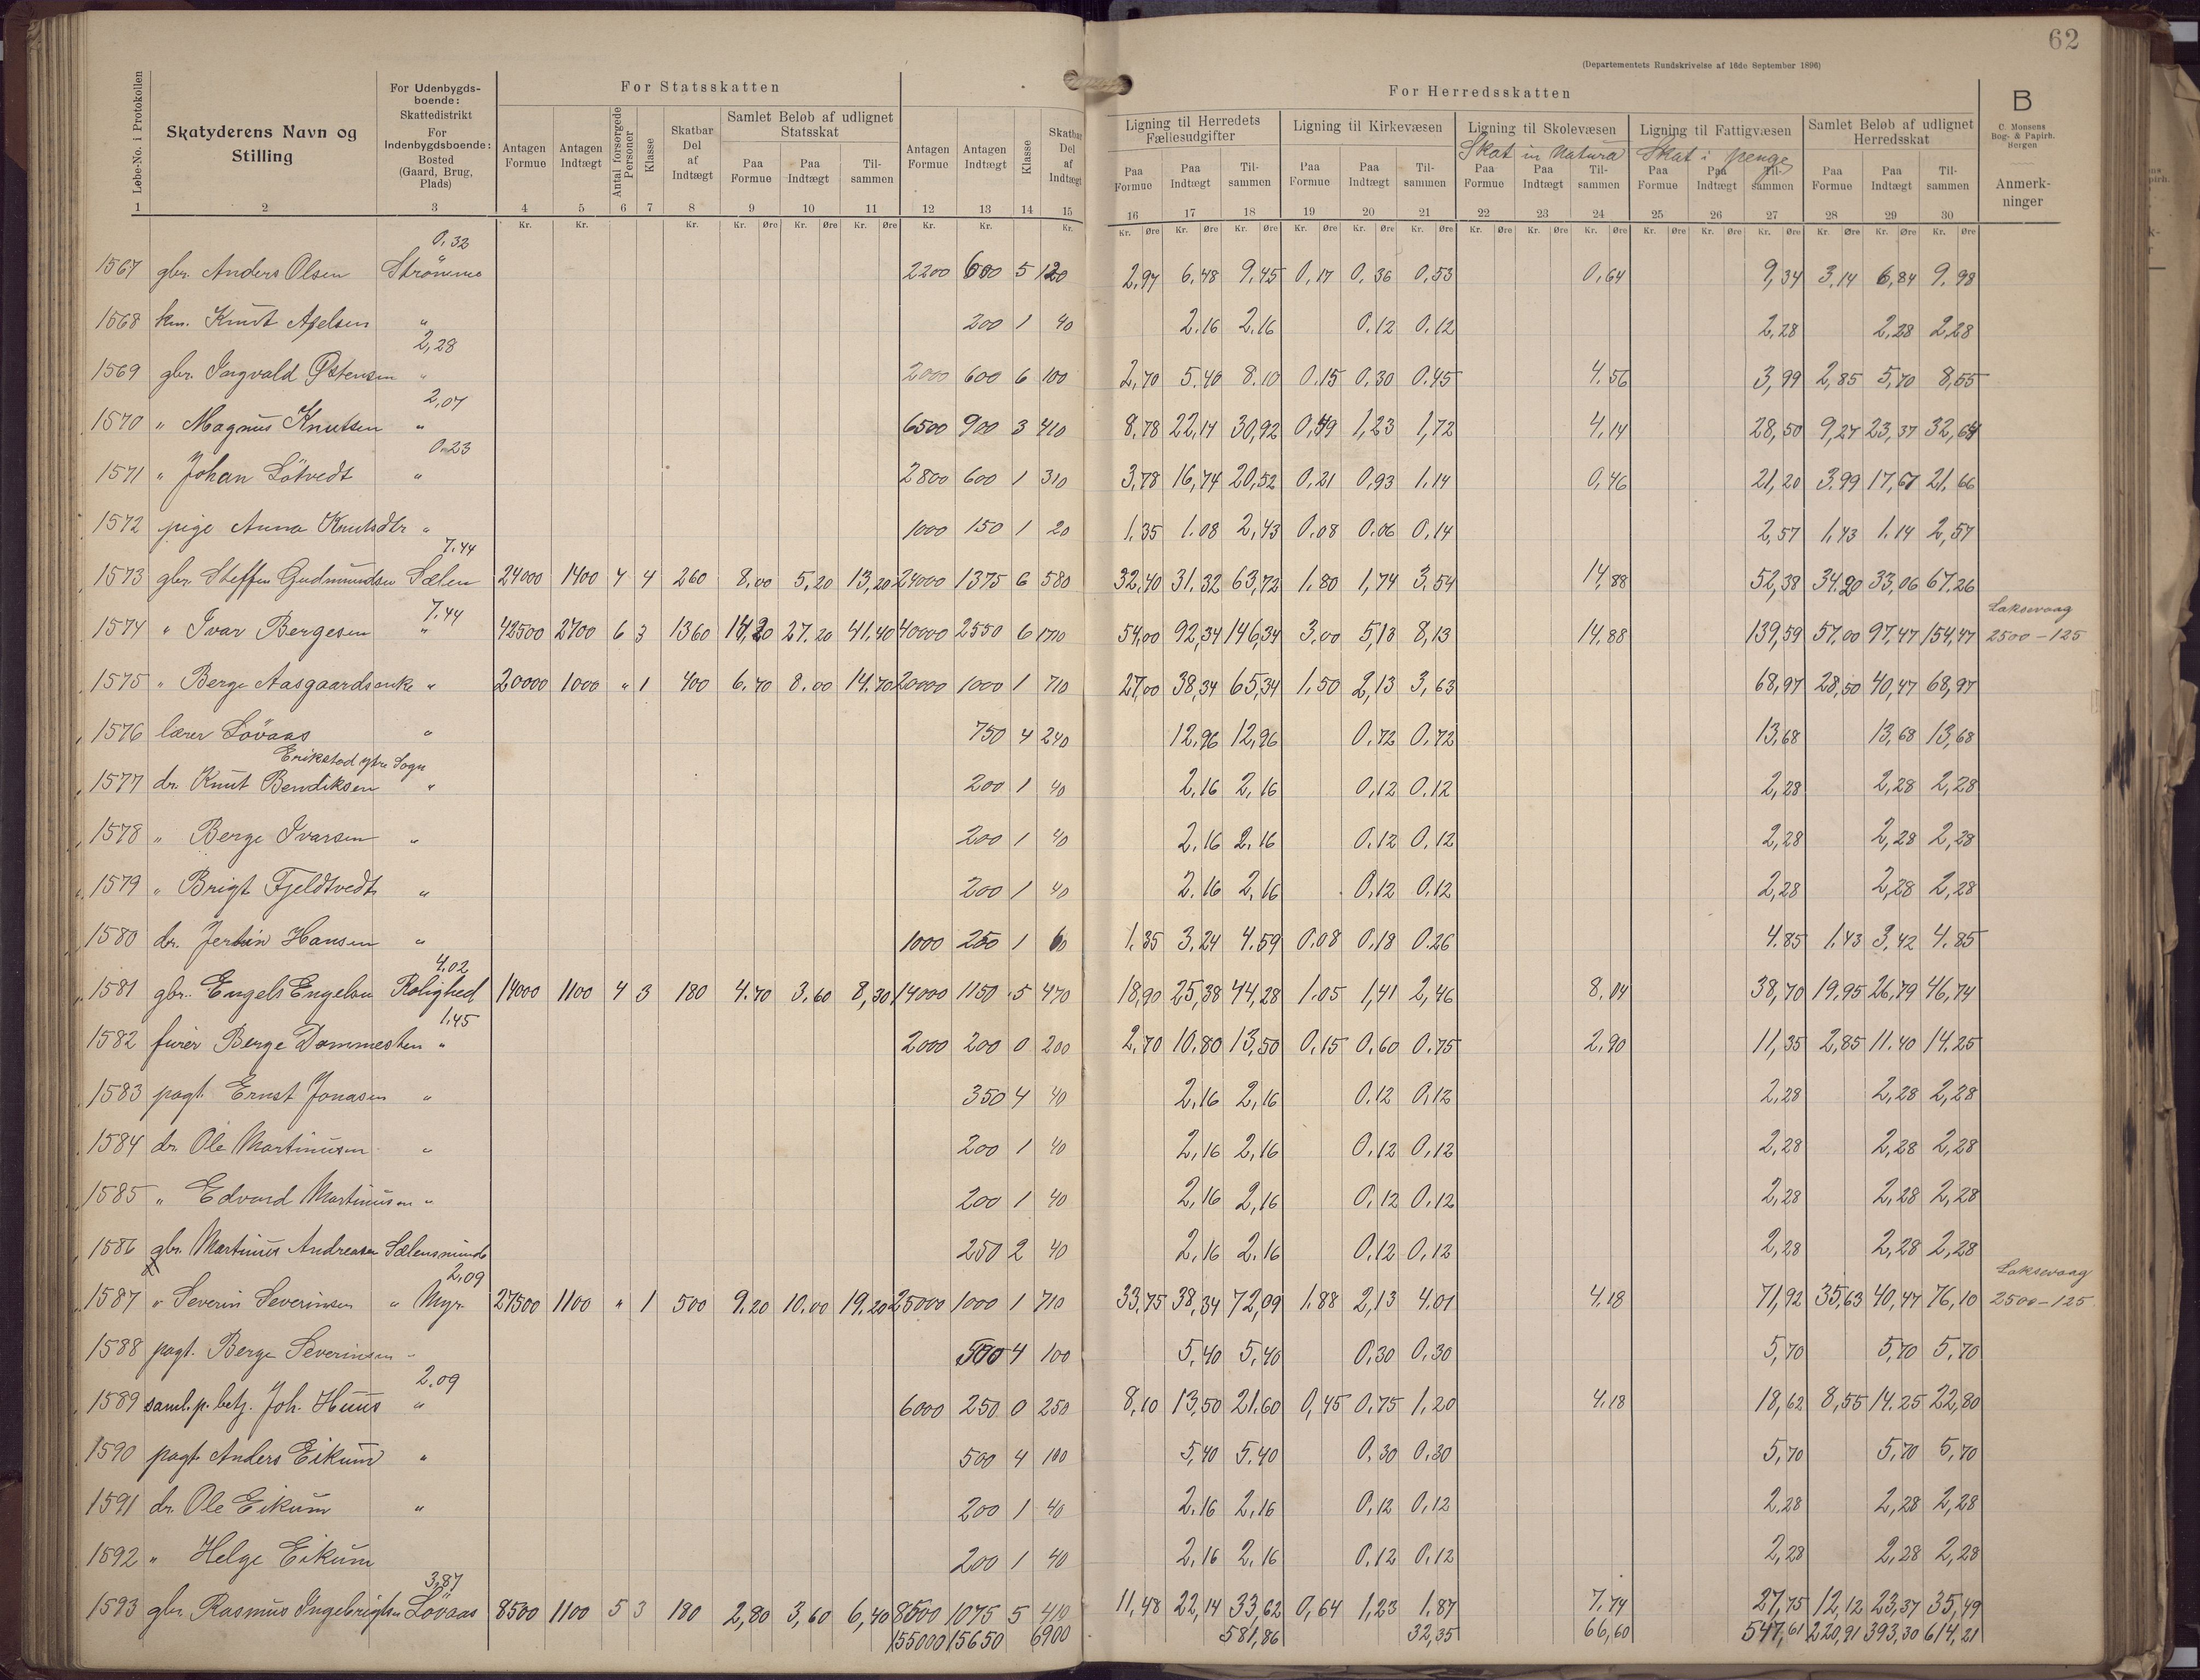 62
(Departementets Rundskrivelse af 16de September 1896)
For Statsskatten
For Herredsskatten
B
C. Monsens Bog- & Papirh. Bergen
Løbe-No. i Protokollen
Skatyderens Navn og Stilling
For Udenbygdsboende: Skattedistrikt For Indenbygdsboende: Bosted (Gaard, Brug, Plads)
Antagen Formue
Antagen Indtægt
Antal forsørgede Personer
Klasse
Skatbar Del af Indtægt
Samlet Beløb af udlignet Statsskat
Paa Formue Paa Indtægt Tilsammen
Antagen Formue
Antagen Indtægt
Klasse
Skatbar Del af Indtægt
Ligning til Herredets Fællesudgifter
Paa Formue Paa Indtægt Tilsammen
Ligning til Kirkevæsen
Paa Formue Paa Indtægt Tilsammen
Ligning til Skolevæsen
Skat in Natura
Paa Formue Paa Indtægt Tilsammen
Ligning til Fattigvæsen
Skat i penge
Paa Formue Paa Indtægt Tilsammen
Samlet Beløb af udlignet Herredsskat
Paa Formue Paa Indtægt Tilsammen
Anmerkninger
1 2 3 4 5 6 7 8 9 10 11 12 13 14 15 16 17 18 19 20 21 22 23 24 25 26 27 28 29 30
0,32
1567 gbr. Anders Olsen Strömme 2200 600 5 120 2,97 6,48 9,45 0,17 0,36 0,53 0,64 9,34 3,14 6,84 9,98
1568 km. Knut Axelsen " 200 1 40 2,16 2,16 0,12 0,12 2,28 2,28 2,28
2,28
1569 gbr. Ingvald Østensen " 2000 600 6 100 2,70 5,40 8,10 0,15 0,30 0,45 4,56 3,99 2,85 5,70 8,55
2,07
1570 " Magnus Knutsen " 6500 900 3 410 8,78 22,14 30,92 0,49 1,23 1,72 4,14 28,50 9,27 23,37 32,64
0,23
1571 " Johan Lötvedt " 2800 600 1 310 3,78 16,74 20,52 0,21 0,93 1,14 0,46 21,20 3,99 17,67 21,66
1572 pige Anna Knutsdtr " 1000 150 1 20 1,35 1,08 2,43 0,08 0,06 0,14 2,57 1,43 1,14 2,57
7,44
1573 gbr. Steffen Gudmundsen Sælen 24000 1400 4 4 260 8,00 5,20 13,20 24000 1375 6 580 32,40 31,32 63,72 1,80 1,74 3,54 14,88 52,38 34,20 33,06 67,26
7,44 Laksevaag
1574 " Ivar Bergesen " 42500 2700 6 3 1360 14,20 27,20 41,40 40000 2550 6 1710 54,00 92,34 146,34 3,00 5,13 8,13 14,88 139,59 57,00 97,47 154,47 2500-125
1575 " Berge Aasgaards enke " 20000 1000 " 1 400 6,70 8,00 14,70 20000 1000 1 710 27,00 38,34 65,34 1,50 2,13 3,63 68,97 28,50 40,47 68,97
1576 lærer Lövaas " 750 4 240 12,96 12,96 0,72 0,72 13,68 13,68 13,68
Erikstad ytre Sogn
1577 dr. Knut Bendiksen " 200 1 40 2,16 2,16 0,12 0,12 2,28 2,28 2,28
1578 " Berge Ivarsen " 200 1 40 2,16 2,16 0,12 0,12 2,28 2,28 2,28
1579 " Brigt Fjeldtvedt " 200 1 40 2,16 2,16 0,12 0,12 2,28 2,28 2,28
1580 dr. Jertin Hansen " 1000 250 1 60 1,35 3,24 4,59 0,08 0,18 0,26 4,85 1,43 3,42 4,85
4,02
1581 gbr. Engels Engelsen Rolighed 14000 1100 4 3 180 4,70 3,60 8,30 14000 1150 5 470 18,90 25,38 44,28 1,05 1,41 2,46 8,04 38,70 19,95 26,79 46,74
1,45
1582 furér Berge Dommesten " 2000 200 0 200 2,70 10,80 13,50 0,15 0,60 0,75 2,90 11,35 2,85 11,40 14,25
1583 pagt. Ernst Jonasen " 350 4 40 2,16 2,16 0,12 0,12 2,28 2,28 2,28
1584 dr. Ole Martinusen " 200 1 40 2,16 2,16 0,12 0,12 2,28 2,28 2,28
1585 " Edvard Martinusen " 200 1 40 2,16 2,16 0,12 0,12 2,28 2,28 2,28
1586 gbr. Martinus Andreasen Sælensminde 250 2 40 2,16 2,16 0,12 0,12 2,28 2,28 2,28
2,09 Laksevaag
1587 " Severin Severinsen " Myr. 27500 1100 " 1 500 9,20 10,00 19,20 25000 1000 1 710 33,75 38,34 72,09 1,88 2,13 4,01 4,18 71,92 35,63 40,47 76,10 2500-125
1588 pagt. Berge Severinsen " 500 4 100 5,40 5,40 0,30 0,30 5,70 5,70 5,70
2,09
1589 saml.p. betj. Joh. Huus " 6000 250 0 250 8,10 13,50 21,60 0,45 0,75 1,20 4,18 18,62 8,55 14,25 22,80
1590 pagt. Anders Eikum " 500 4 100 5,40 5,40 0,30 0,30 5,70 5,70 5,70
1591 dr. Ole Eikum " 200 1 40 2,16 2,16 0,12 0,12 2,28 2,28 2,28
1592 " Helge Eikum 200 1 40 2,16 2,16 0,12 0,12 2,28 2,28 2,28
3,87
1593 gbr. Rasmus Ingebrigtsen Lövaas 8500 1100 5 3 180 2,80 3,60 6,40 8500 1075 5 410 11,48 22,14 33,62 0,64 1,23 1,87 7,74 27,75 12,12 23,37 35,49
155000 15650 6900 581,86 32,35 66,60 547,61 220,91 393,30 614,21